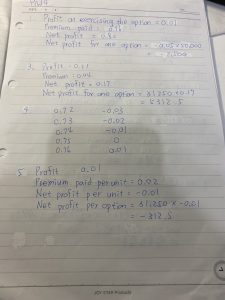 Profit on exercising the option = 0.01
Premium paid =
Net profit =
Net profit for one option = -0.05 × 50,000
3. Profit
Premium =
Net profit = 0.17
Net profit for one option = 31250 × 0.17
= 5312.5
4. 0.72 -0.03
0.73 -0.02
0.74 -0.01
0.75 0
0.76 0.01
5. Profit 0.01
Premium paid per unit = 0.02
Net profit per unit = -0.01
Net profit per option = 31250 × -0.01
= -312.5
JOY STAR